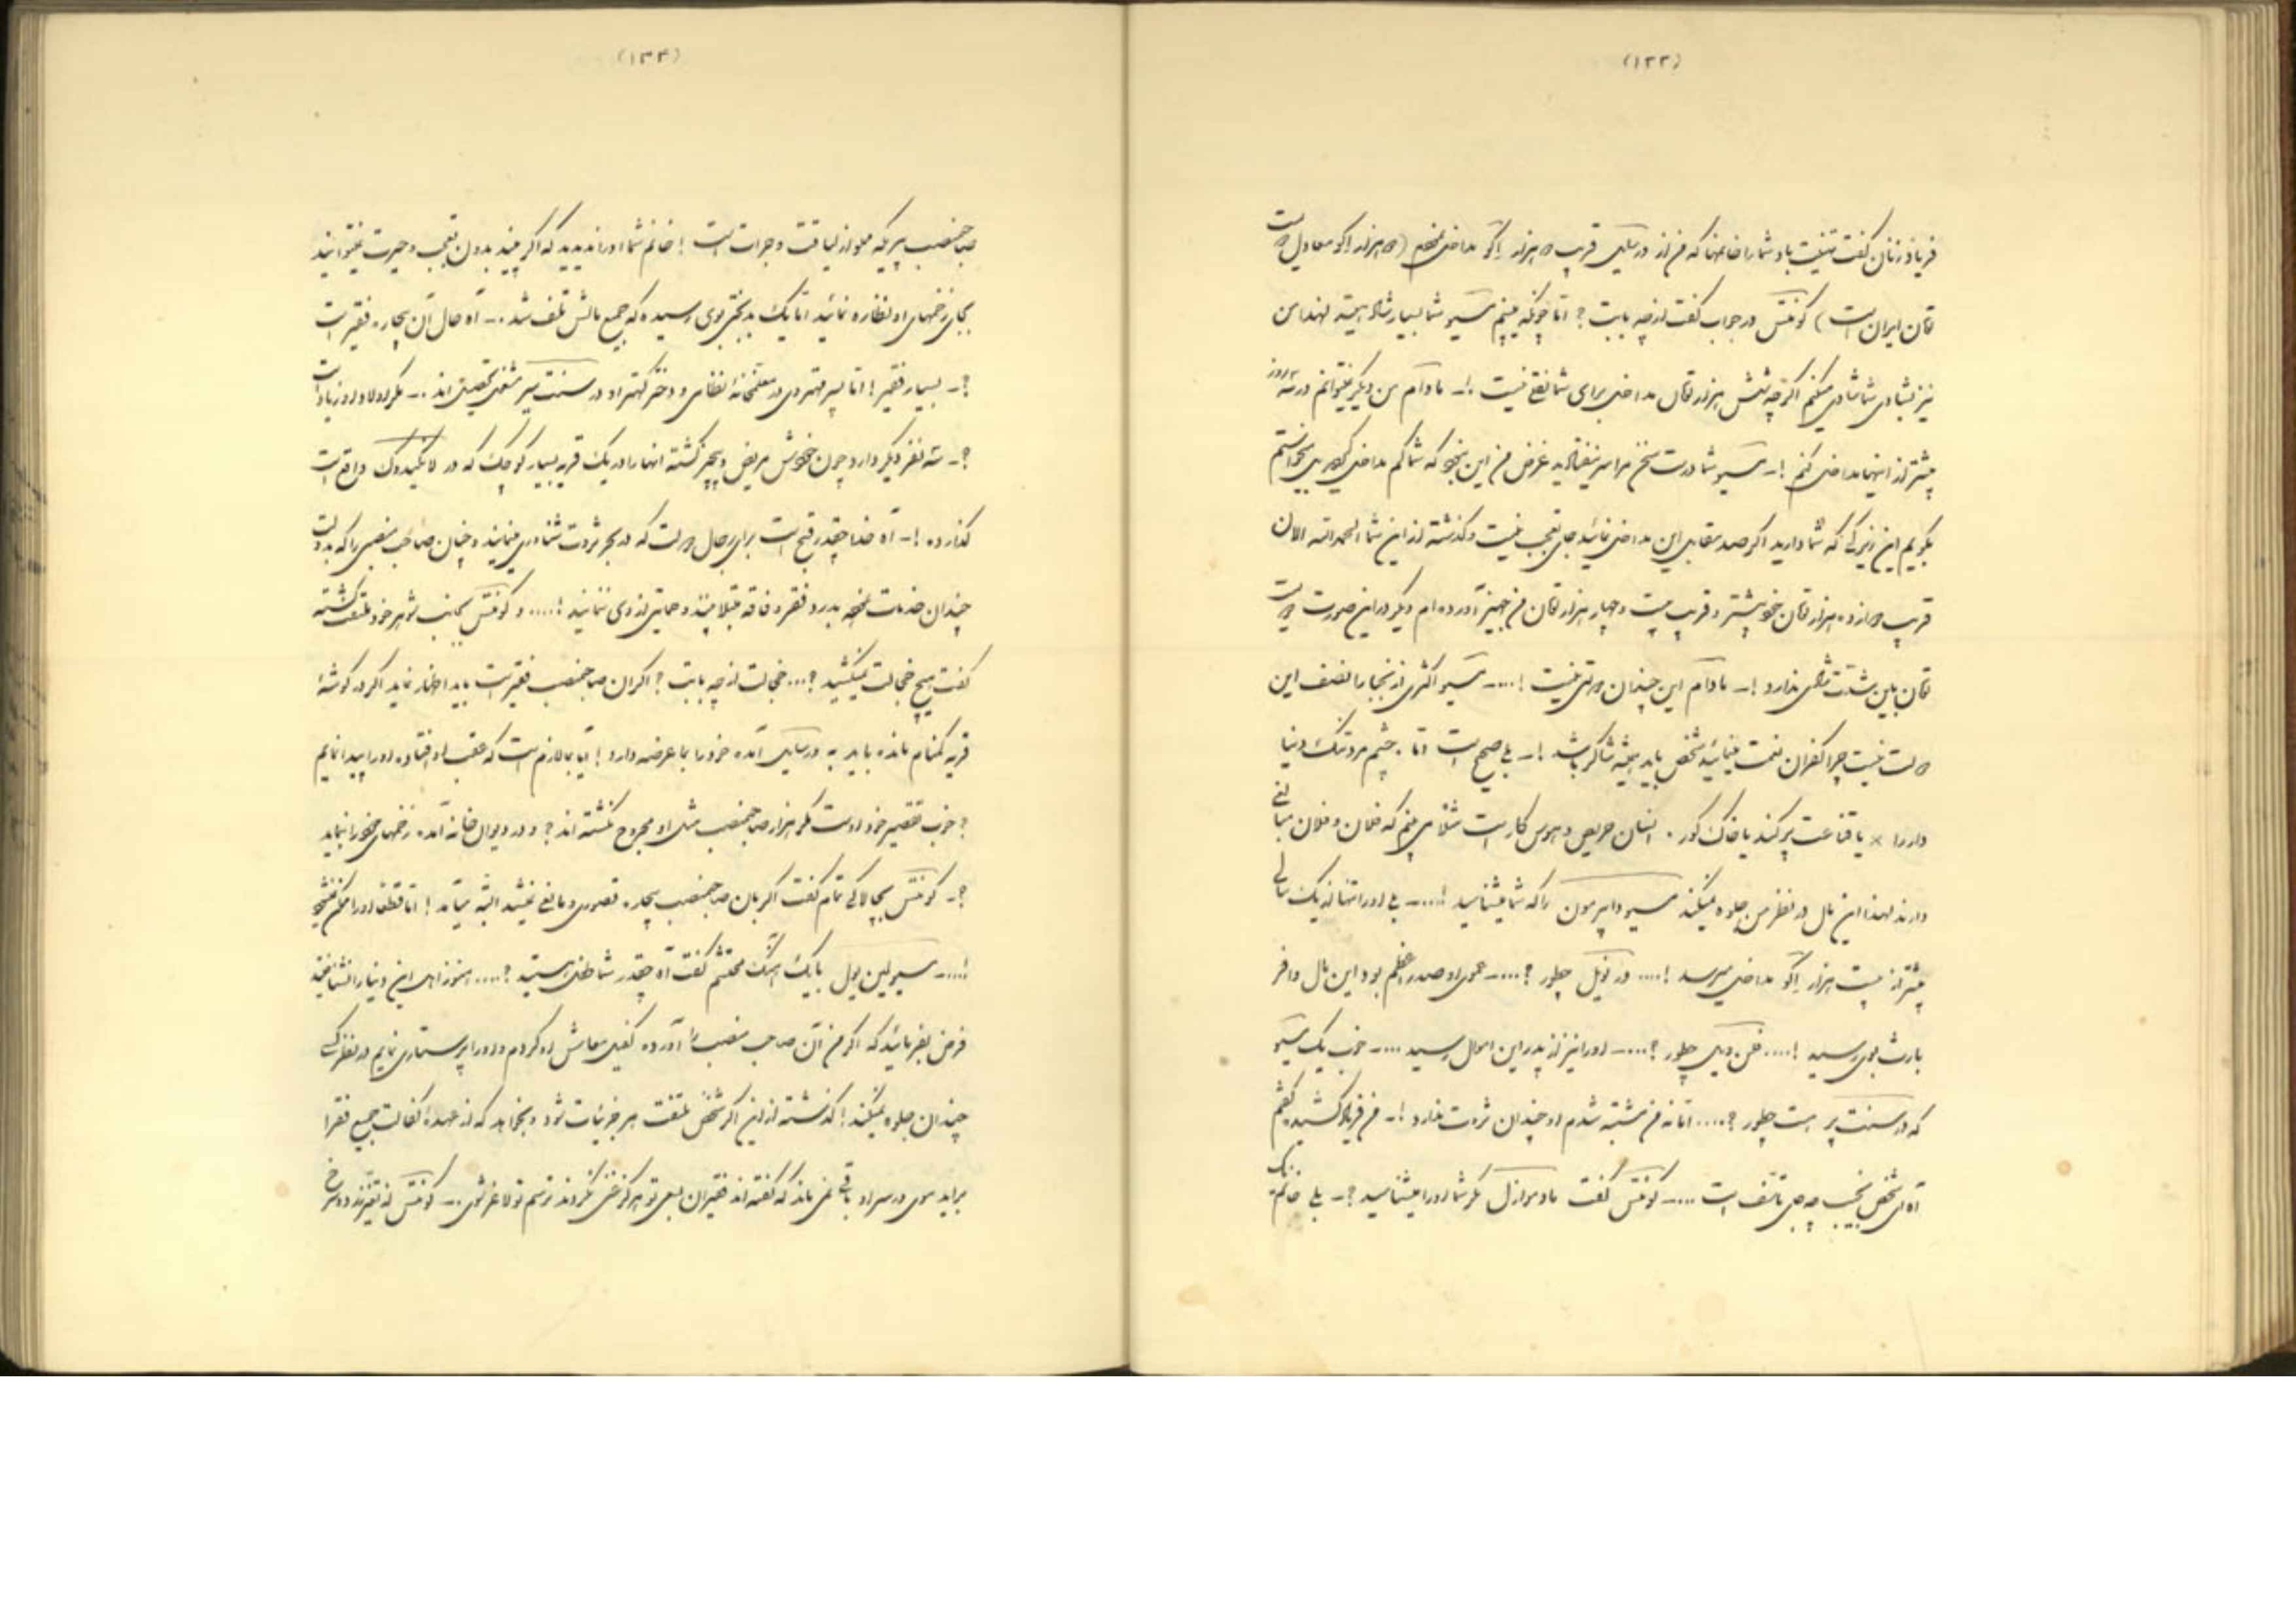 (۱۳۳)
فریاد زنان گفت تهنیت باد شما را خانمها که من از ورسایل قریب ده هزار اکو مداخل نمودم (ده هزار اکو معادل دویست
تومان ایران است) کونتس در جواب گفت از چه بابت؟ اما چونکه میبینم مسیو شما بسیار شاد هستید لهذا من
نیز بشادی شما شادی میکنم اگرچه شش هزار تومان مداخل برای شما نقلی نیست !ـ مادام من دیگر نمیتوانم در سه روز
بیشتر از اینها مداخل کنم !ـ مسیو شما درست سخن مرا سر نیفتادید غرض من این نبود که شما کم مداخل کردید میخواستم
بگویم این زیرکی که شما دارید اگر صد مقابل این مداخل نمائید جای تعجب نیست و گذشته از این شما الحمدالله الان
قریب دوازده هزار تومان خود بیشتر و قریب بیست و چهار هزار تومان من جهیز آورده‌ام دیگر در این صورت دویست
تومان باین شدت شادی ندارد !ـ مادام این چندان دولتی نیست !.... مسیو اکثری از نجبا را نصف این
دولت نیست چرا کفران نعمت مینمائید شخص باید همیشه شاکر باشد !ـ بلی صحیح است اما . چشم مرد تنگ دنیا
دار را × یا قناعت پر کند یا خاک گور . انسان حریص و هوس کار است مثلا می بینم که فلان و فلان مبالغی
دارند لهذا این مال در نظر من جلوه نمیکند مسیو داپرمون را که شما میشناسید !.... بلی او را تنها از یک سالی
بیشتر از بیست هزار اکو مداخل میرسد !.... در نویل چطور ؟.... عموی او صدر اعظم بود این مال وافر
بارث بوی رسید !.... فن ویل چطور ؟.... او را نیز از پدر این اموال رسید .... خوب یک مسیو
که در سنت پر است چطور ؟.... اما نه من مشتبه شدم او چندان ثروت ندارد !ـ من فریاد کشیده گفتم
آه ای شخص نجیب چه جای تاسف است .... کونتس گفت مادموازل مگر شما او را میشناسید ؟ـ بلی خانم یک
(۱۳۴)
صاحبمنصب پیریکه مملو از لیاقت و جرات است ! خانم شما او را ندیدید که اگر ببینید بدون تعجب و حیرت نمیتوانید
بجای زخمهای او نظاره نمائید اما یک بدبختی بوی رسیده که جمیع مالش تلف شد .ـ آه حال آن بیچاره فقیر است
؟ـ بسیار فقیر ! اما پسر مهتر وی در معلمخانه نظامی و دختر کهتر او در سنت سیر مشغول تحصیل‌اند .ـ مگر اولاد او زیاد است
؟ـ سه نفر دیگر دارد چون خودش مریض و بی‌چیز گشته آنها را در یک قریه بسیار کوچک که در لانگیدوک واقع است
گذارده !ـ آه خدا چقدر قبیح است برای رجال دولت که در بحر ثروت شناوری مینمایند و چنان صاحب منصبی را که بدولت
چندان خدمات نموده بدرد فقر و فاقه مبتلا بینند و حمایتی از وی ننمایند !.... و کونتس بجانب شوهر خود ملتفت گشته
گفت هیچ خجالت نمیکشید ؟... خجالت از چه بابت ؟ اگر آن صاحبمنصب فقیر است باید اظهار نماید اگر در گوشه
قریه گمنام مانده باید به ورسایل آمده خود را بما عرضه دارد ! آیا بما لازم است که عقب او افتاده او را پیدا نمایم
؟ خوب تقصیر خود اوست مگر هزار صاحبمنصب مثل او مجروح نگشته‌اند ؟ و در دیوان خانه آمده زخمهای خود را بنماید
؟ـ کونتس بچالاکی تمام گفت اگر بان صاحبمنصب بیچاره قصوری و مانعی نمیشد البته میاید ! اما قطعا او را ممکن نمیشود
!.... مسیو لین یول با یک آهنگ محتشم گفت آه چقدر شما طفل هستید ؟.... هنوز اهل این دنیا را نشناخته‌اید
فرض بفرمائید که اگر من آن صاحب منصب را آورده کفیل معاش او کردم و او را پرستاری نمایم در نظر کسی
چندان جلوه نمیکند ! گذشته از این اگر شخص ملتفت هر جزئیات شود و بخواهد که از عهده کفالت جمیع فقرا
براید موی در سر او باقی نمی ماند که گفته‌اند فقیران بسعی تو هرگز غنی نگردند ترسم تو لاغر شوی .ـ کونتس از تغیر زرد و سرخ